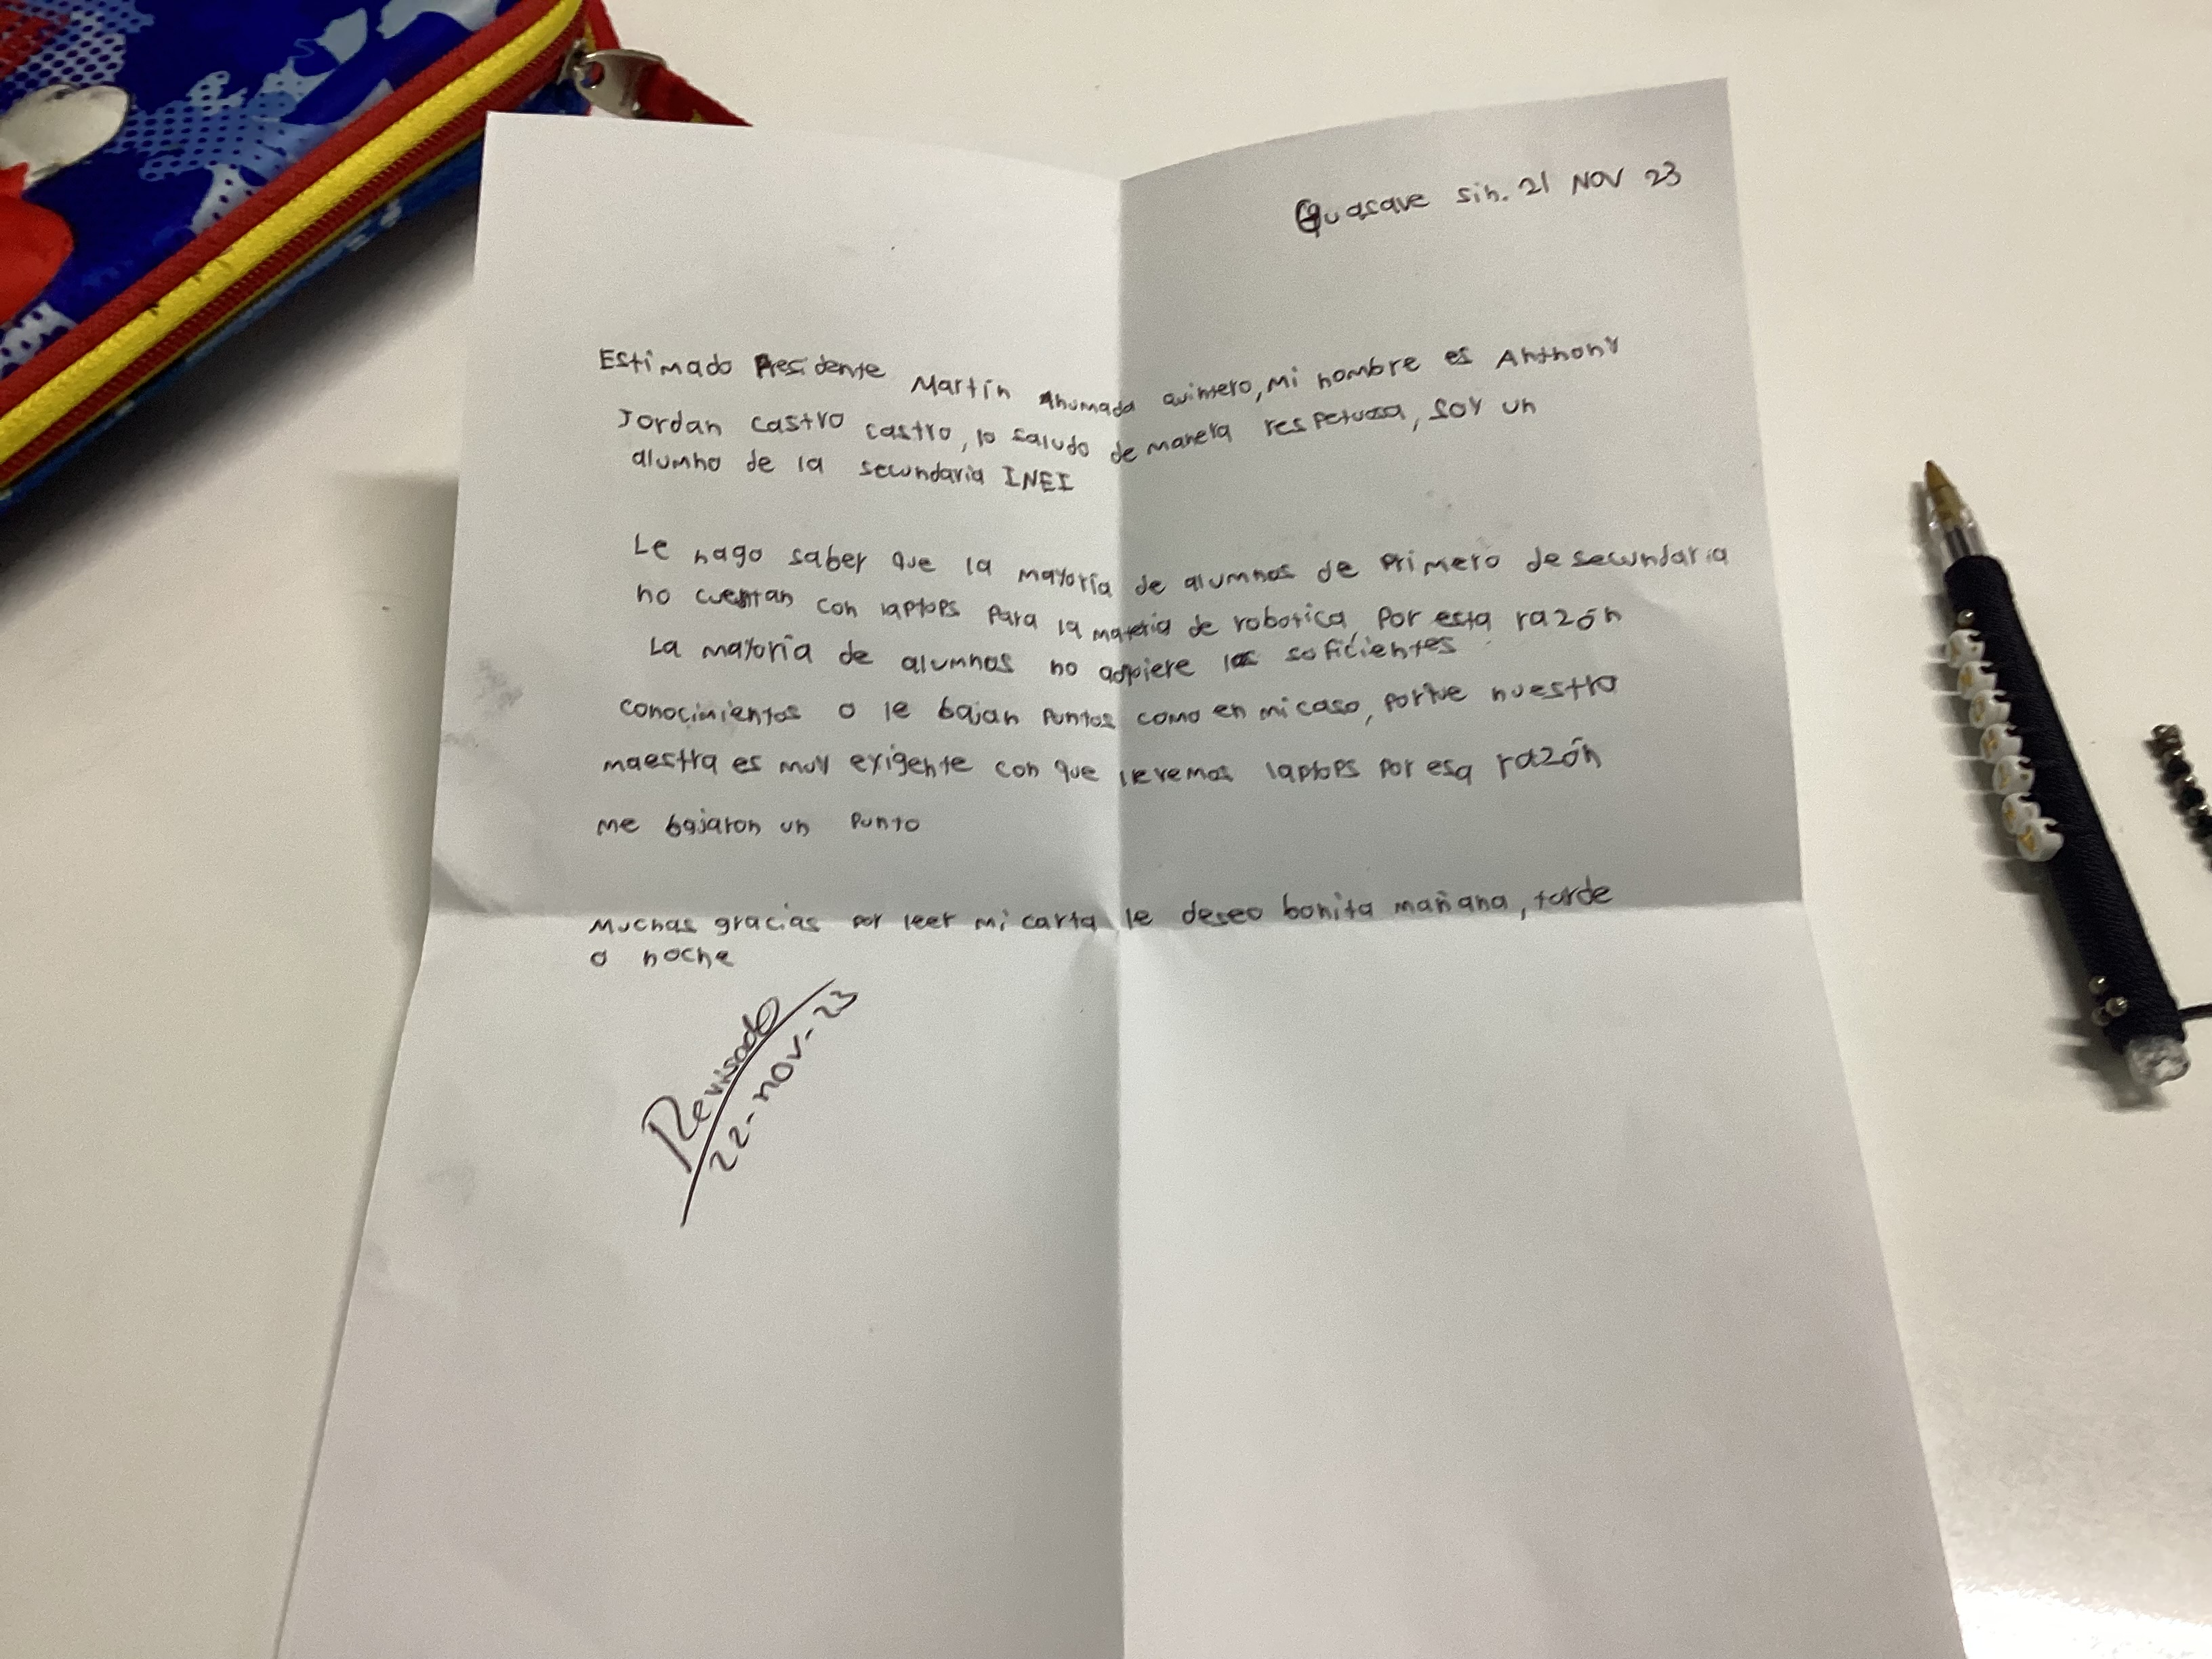 Guasave sin. 21 NOV 23
Estimado Presidente Martín Ahumada quintero, mi nombre es Anthony
Jordan castro castro, lo saludo de manera respetuosa, soy un
alumno de la secundaria INEI
Le hago saber que la mayoría de alumnos de primero de secundaria
no cuentan con laptops para la materia de robotica por esta razón
La mayoría de alumnos no adquiere los suficientes
conocimientos o le bajan puntos como en mi caso, porque nuestra
maestra es muy exigente con que llevemos laptops por esa razón
me bajaron un punto
Muchas gracias por leer mi carta le deseo bonita mañana, tarde
o noche
Revisado
22-nov-23